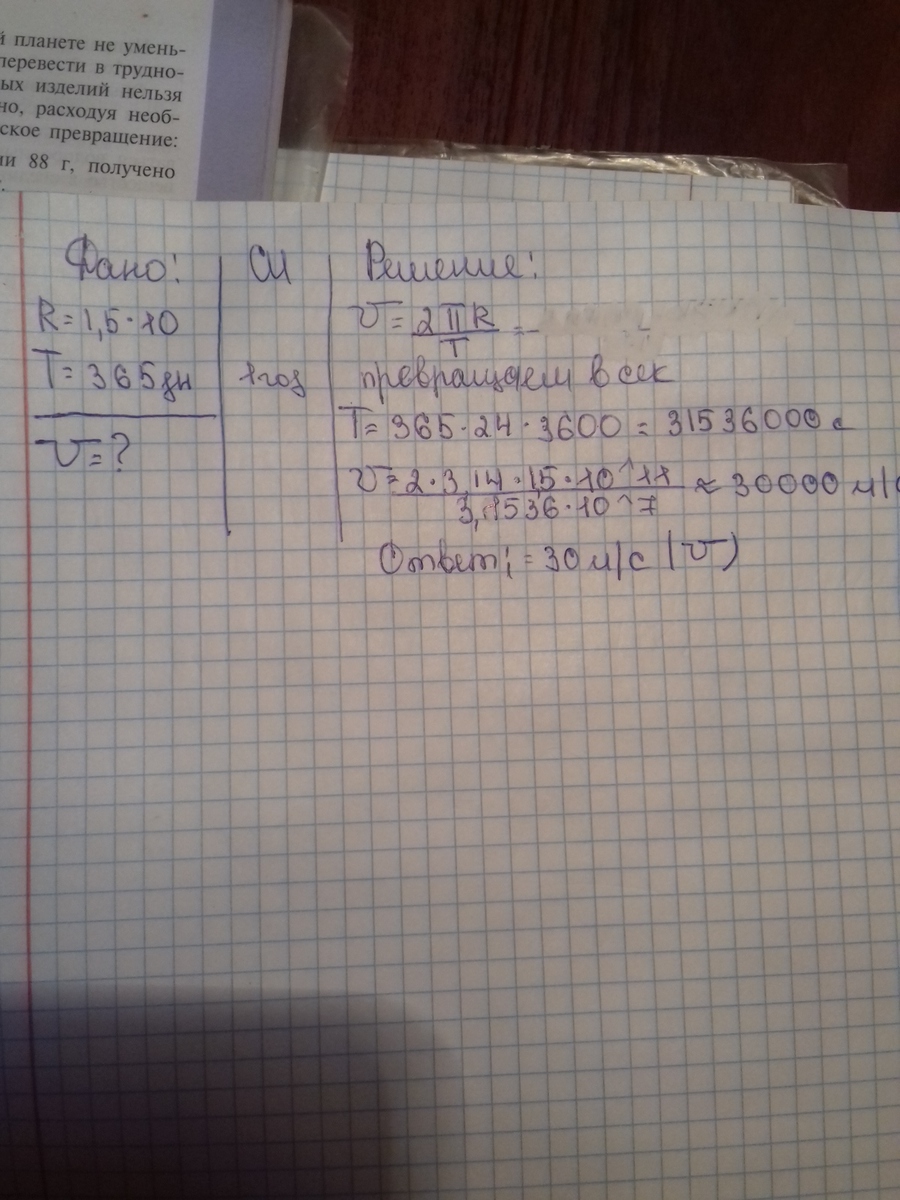 й планете не умень-
перевести в трудно-
ых изделий нельзя
но, расходуя необ-
ское превращение:
ии 88 г, получено
Дано:
R = 1,5 · 10
T = 365 дн
V = ?
СИ
1 год
Решение:
V = 2ПR / T =
превращаем в сек
T = 365 · 24 · 3600 = 31536000 с
V = 2 · 3,14 · 1,5 · 10^11 / 3,1536 · 10^7 ≈ 30000 м/с
Ответ: = 30 м/с (V)